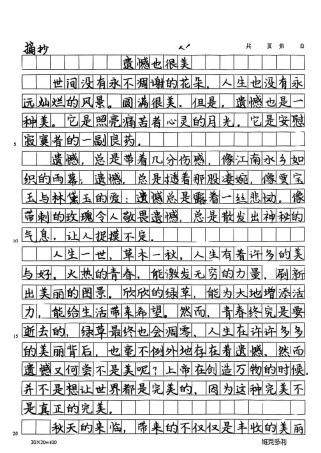 摘抄
共 页 第 页
遗憾也很美
世间没有永不凋谢的花朵，人生也没有永
远灿烂的风景。圆满很美，但是，遗憾也是一
种美。它是照亮痛苦者心灵的月光，它是安慰
5
寂寞者的一副良药。
遗憾，总是带着几分伤感，像江南水乡如
织的雨幕；遗憾，总是透着那股凄婉，像贾宝
玉与林黛玉的爱；遗憾总是露着一丝悲伤。像
带刺的玫瑰令人敬畏遗憾，总是散发出神秘的
10
气息，让人捉摸不定。
人生一世，草木一秋，人生有着许多的美
与好。火热的青春，能激发无穷的力量，刷新
出美丽的图景。欣欣的绿草，能为大地增添活
力，能给生活带来希望。然而，青春终究是要
15
逝去的，绿草最终也会凋零，人生在许许多多
的美丽背后，也毫不例外地存在着遗憾。然而
遗憾又何尝不是美呢？上帝在创造万物的时候，
并不是想让世界都是完美的，因为这种完美不
是真正的完美。
20
秋天的来临，带来的不仅仅是丰收的美丽
20×20=400
班克多利